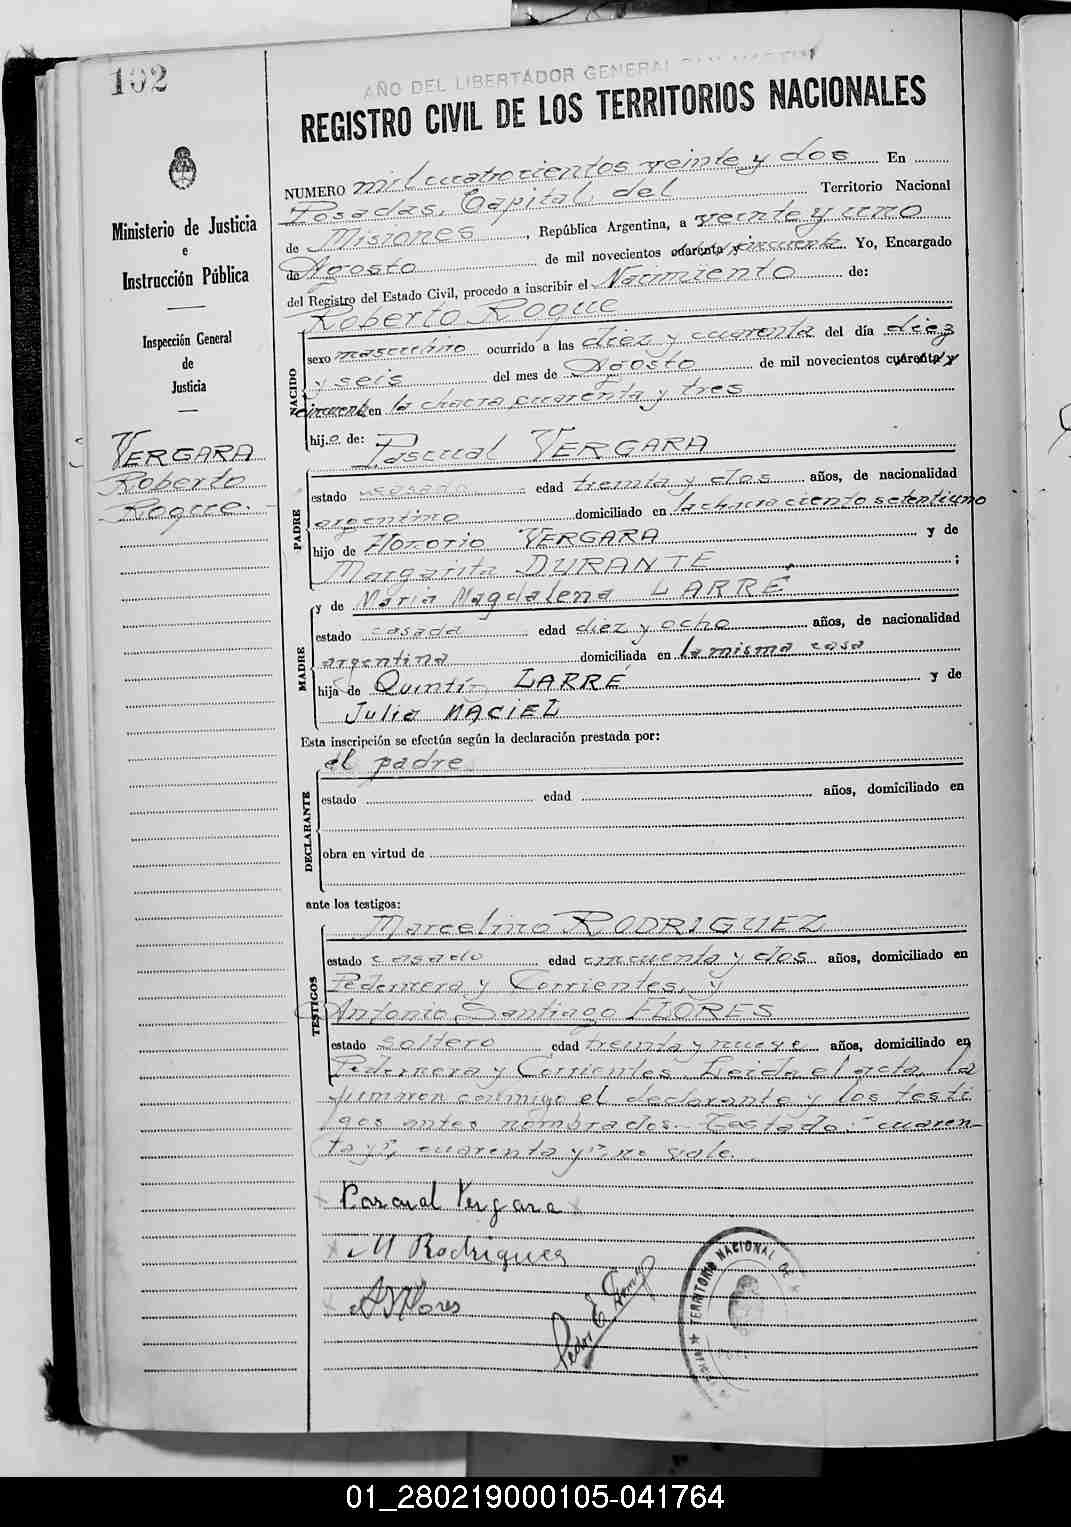 102
AÑO DEL LIBERTADOR GENERAL SAN MARTIN
REGISTRO CIVIL DE LOS TERRITORIOS NACIONALES
Ministerio de Justicia
e
Instrucción Pública
Inspección General
de
Justicia
VERGARA
Roberto
Roque.
NUMERO mil cuatrocientos veinte y dos En
Posadas, Capital del Territorio Nacional
de Misiones, República Argentina, a veinte y uno
de Agosto de mil novecientos cuarenta y cincuenta. Yo, Encargado
del Registro del Estado Civil, procedo a inscribir el Nacimiento de:
Roberto Roque
NACIDO
sexo masculino ocurrido a las diez y cuarenta del día diez
y seis del mes de Agosto de mil novecientos cuarenta y
cincuenta en la chacra cuarenta y tres
hijo de: Pascual VERGARA
PADRE
estado casado edad treinta y dos años, de nacionalidad
argentino domiciliado en la chacra ciento setentiuno
hijo de Honorio VERGARA y de
Margarita DURANTE ;
y de María Magdalena LARRÉ
MADRE
estado casada edad diez y ocho años, de nacionalidad
argentina domiciliada en la misma casa
hija de Quintín LARRÉ y de
Julia MACIEL
Esta inscripción se efectúa según la declaración prestada por:
el padre
DECLARANTE
estado edad años, domiciliado en
obra en virtud de
ante los testigos:
TESTIGOS
Marcelino RODRIGUEZ
estado casado edad cincuenta y dos años, domiciliado en
Pedernera y Corrientes, y
Antonio Santiago FLORES
estado soltero edad treinta y nueve años, domiciliado en
Pedernera y Corrientes. Leida el acta, la
firmaron conmigo el declarante y los testi
gos antes nombrados.- Testado: "cuaren-
ta y", cuarenta y" no vale.
Pascual Vergara
M Rodriguez
A S Flores
Pedro E.
TERRITORIO NACIONAL DE
01_280219000105-041764